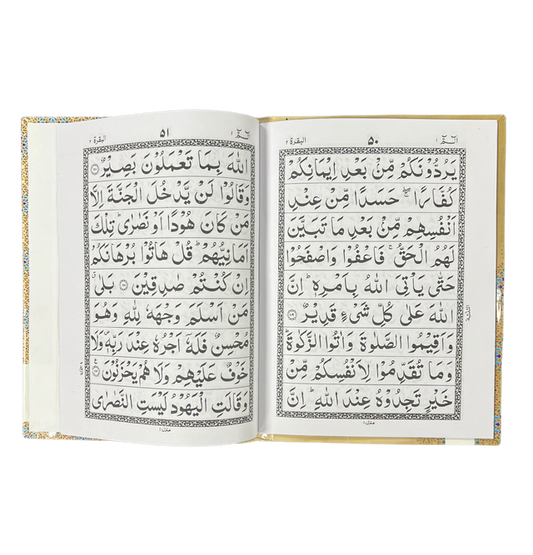 البقرة ٢
٥٠
الٓمّٓ ١
يَرُدُّوْنَكُمْ مِّنْۢ بَعْدِ اِيْمَانِكُمْ
كُفَّارًا ۖۚ حَسَدًا مِّنْ عِنْدِ
اَنْفُسِهِمْ مِّنْۢ بَعْدِ مَا تَبَيَّنَ
لَهُمُ الْحَقُّ ۚ فَاعْفُوْا وَاصْفَحُوْا
حَتّٰى يَاْتِىَ اللّٰهُ بِاَمْرِهٖ ؕ اِنَّ
اللّٰهَ عَلٰى كُلِّ شَىْءٍ قَدِيْرٌ
وَاَقِيْمُوا الصَّلٰوةَ وَاٰتُوا الزَّكٰوةَ ؕ
وَمَا تُقَدِّمُوْا لِاَنْفُسِكُمْ مِّنْ
خَيْرٍ تَجِدُوْهُ عِنْدَ اللّٰهِ ؕ اِنَّ
منزل ١
البقرة ٢
٥١
الٓمّٓ ١
اللّٰهَ بِمَا تَعْمَلُوْنَ بَصِيْرٌ
وَقَالُوْا لَنْ يَّدْخُلَ الْجَنَّةَ اِلَّا
مَنْ كَانَ هُوْدًا اَوْ نَصٰرٰى ؕ تِلْكَ
اَمَانِيُّهُمْ ؕ قُلْ هَاتُوْا بُرْهَانَكُمْ
اِنْ كُنْتُمْ صٰدِقِيْنَ بَلٰى
مَنْ اَسْلَمَ وَجْهَهٗ لِلّٰهِ وَهُوَ
مُحْسِنٌ فَلَهٗۤ اَجْرُهٗ عِنْدَ رَبِّهٖ وَلَا
خَوْفٌ عَلَيْهِمْ وَلَا هُمْ يَحْزَنُوْنَ
وَقَالَتِ الْيَهُوْدُ لَيْسَتِ النَّصٰرٰى
منزل ١